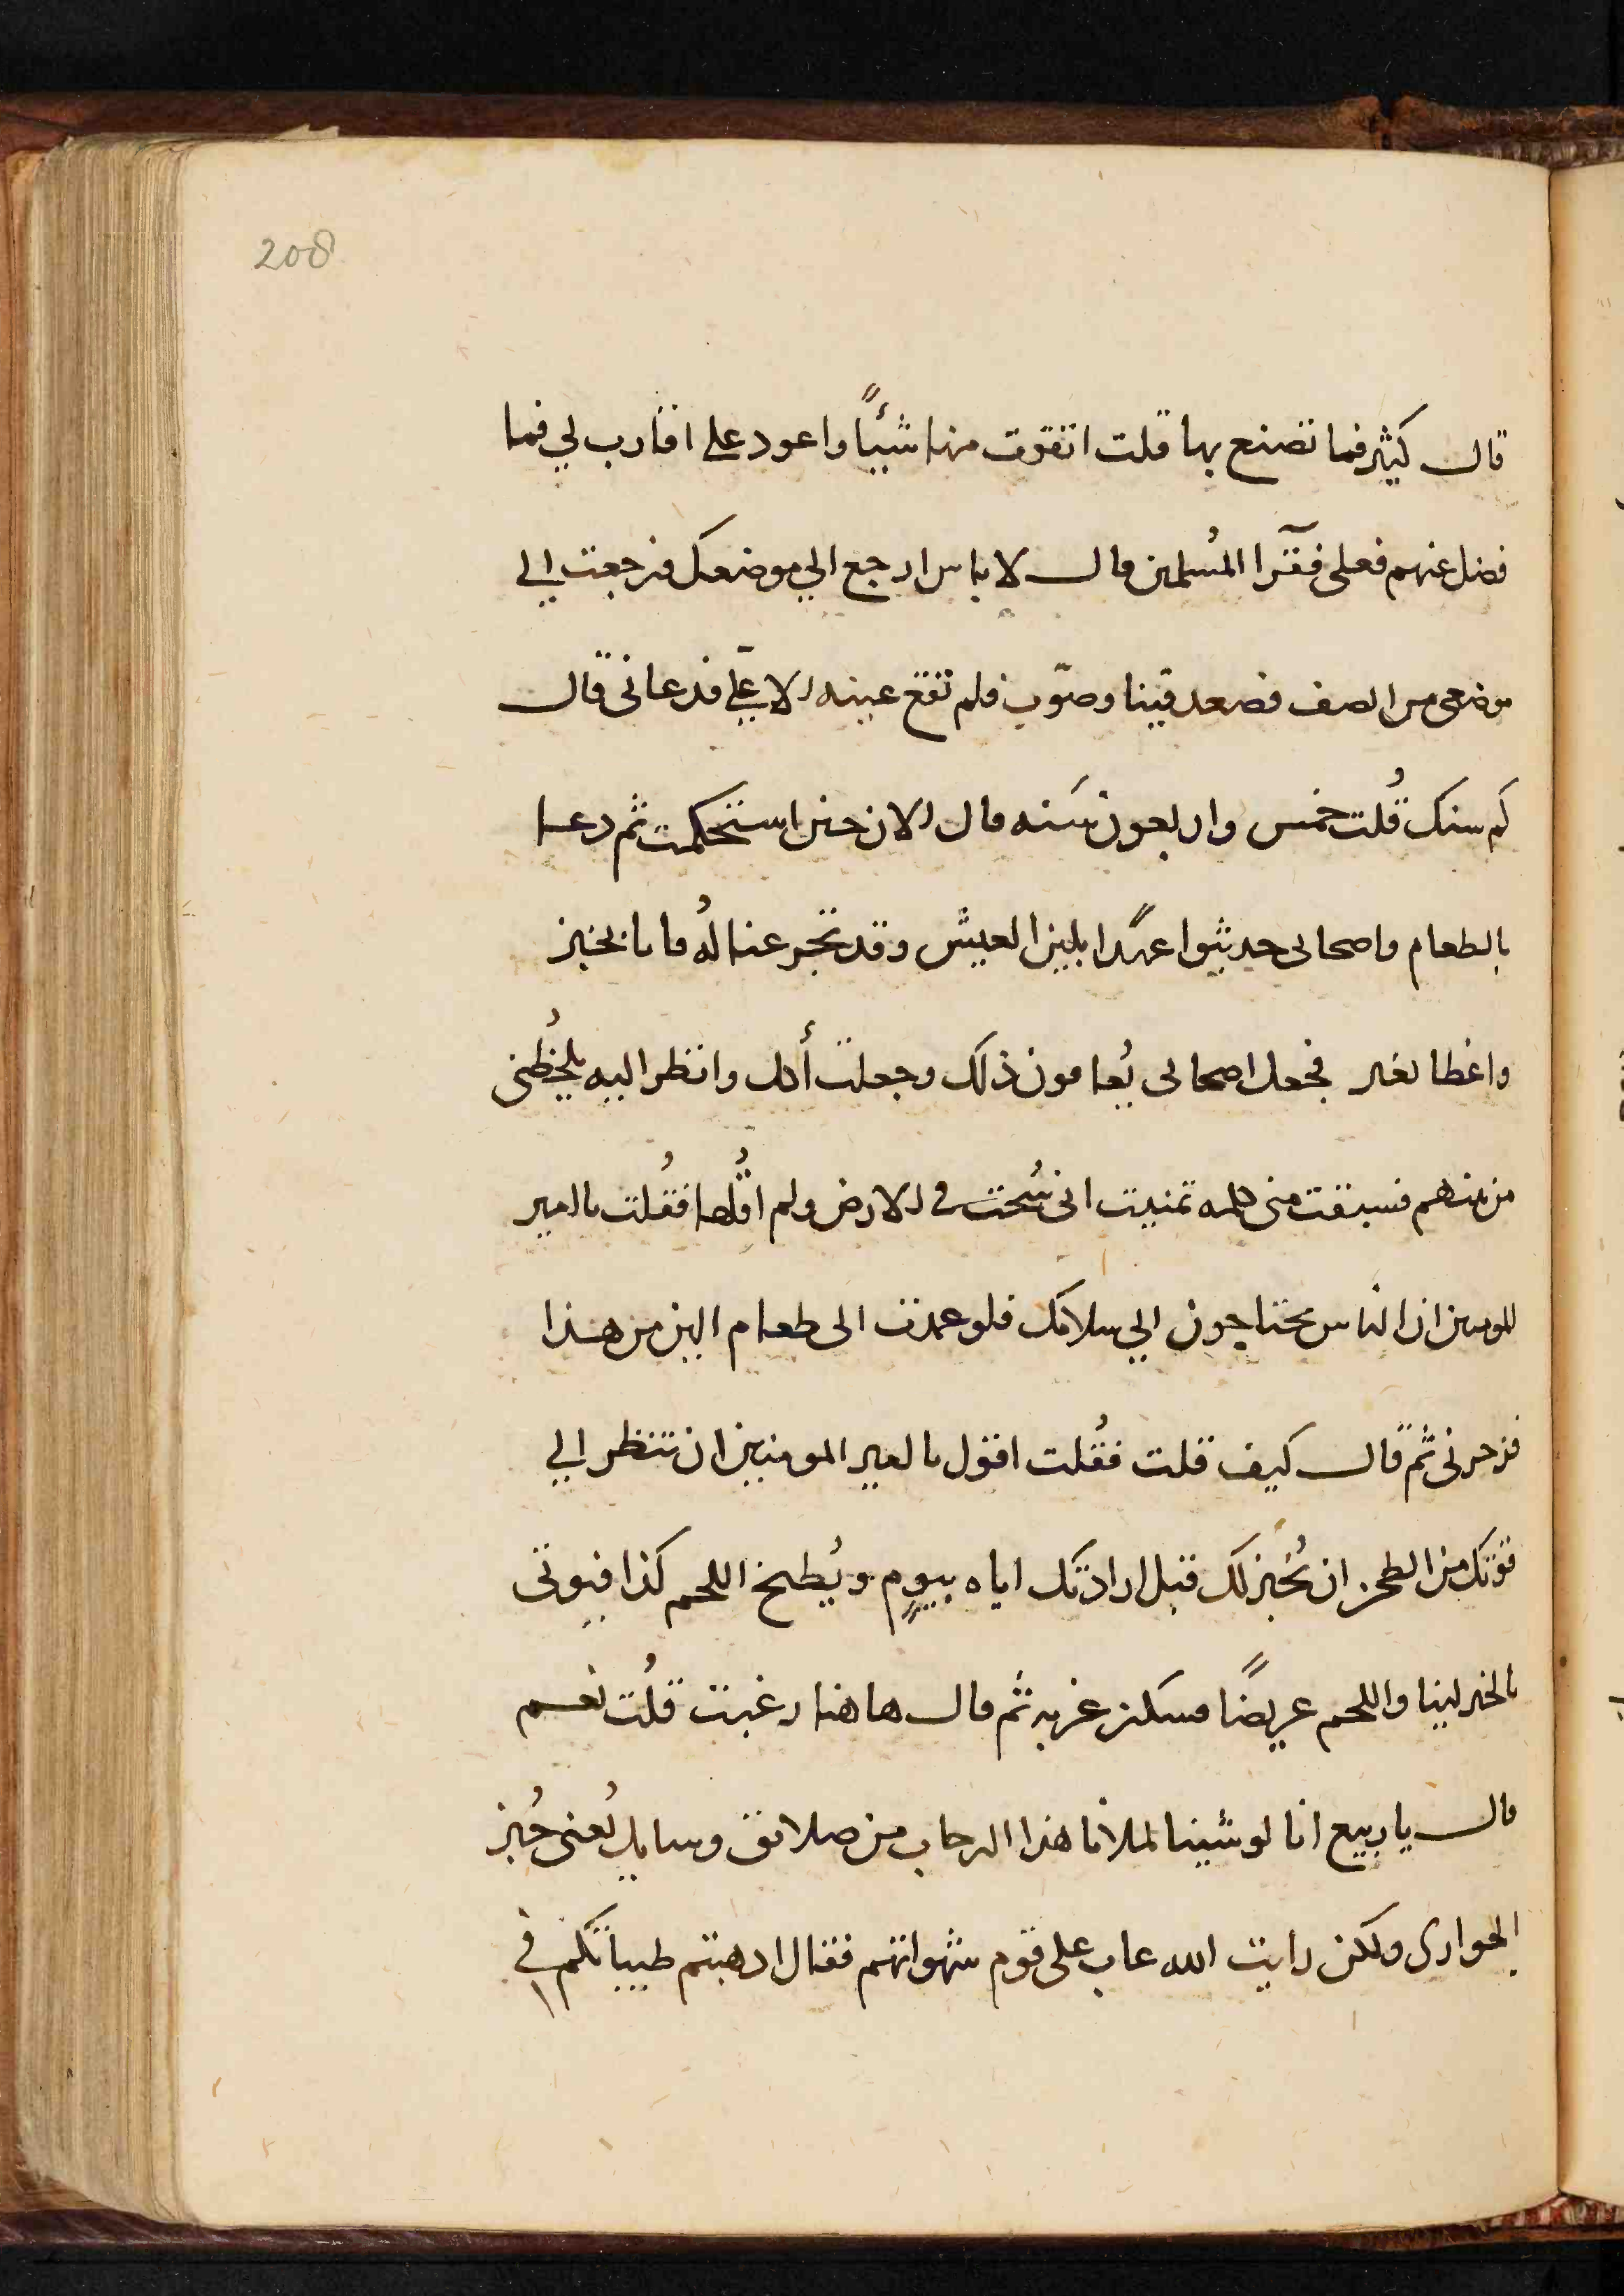 208
قال كثير فما تصنع بها قلت اتقوت منها شيئاً واعود على اقارب لي فما
فضل عنهم فعلى فقرا المُسلمين قال لا باس ارجع الي موضعك فرجعت الي
موضعى من الصف فصعد فينا وصوّب فلم تقع عينه الا عليّ فدعانى قال
كم سنك قُلت خمس واربعون سَنه قال الان حين استحكمت ثم دعا
بالطعام واصحابى حديثوا عهدًا بلين العيش وقد تجوعنا لهُ فاتا بخبز
واعطا بعير فجعل اصحابى يُعافون ذلك وجعلت أكل وانظر اليه يلحظُنى
من بينهم فسبقت منى كلمه تمنيت انى سُخت فى الارض ولم اقُلها فقُلت يا امير
المومنين ان الناس يحتاجون الي سلامك فلو عمدت الى طعام الين من هذا
فزجرنى ثم قال كيف قلت فقُلت اقول يا امير المومنين ان تنظر الي
قوتك من الطحين ان يُخبز لك قبل ارادتك اياه بيومٍ ويُطبخ اللحم كذا فيوتى
بالخبز لينا واللحم عريضًا فسكن غربه ثم قال هاهنا رغبت قلُت نعم
قال يا ربيع انا لو شينا لملانا هذا الرحاب من صلائق وسبايك يُعنى خُبز
الحوارى ولكن رايت الله عاب على قوم شهواتهم فقال ادهبتم طيباتكم في